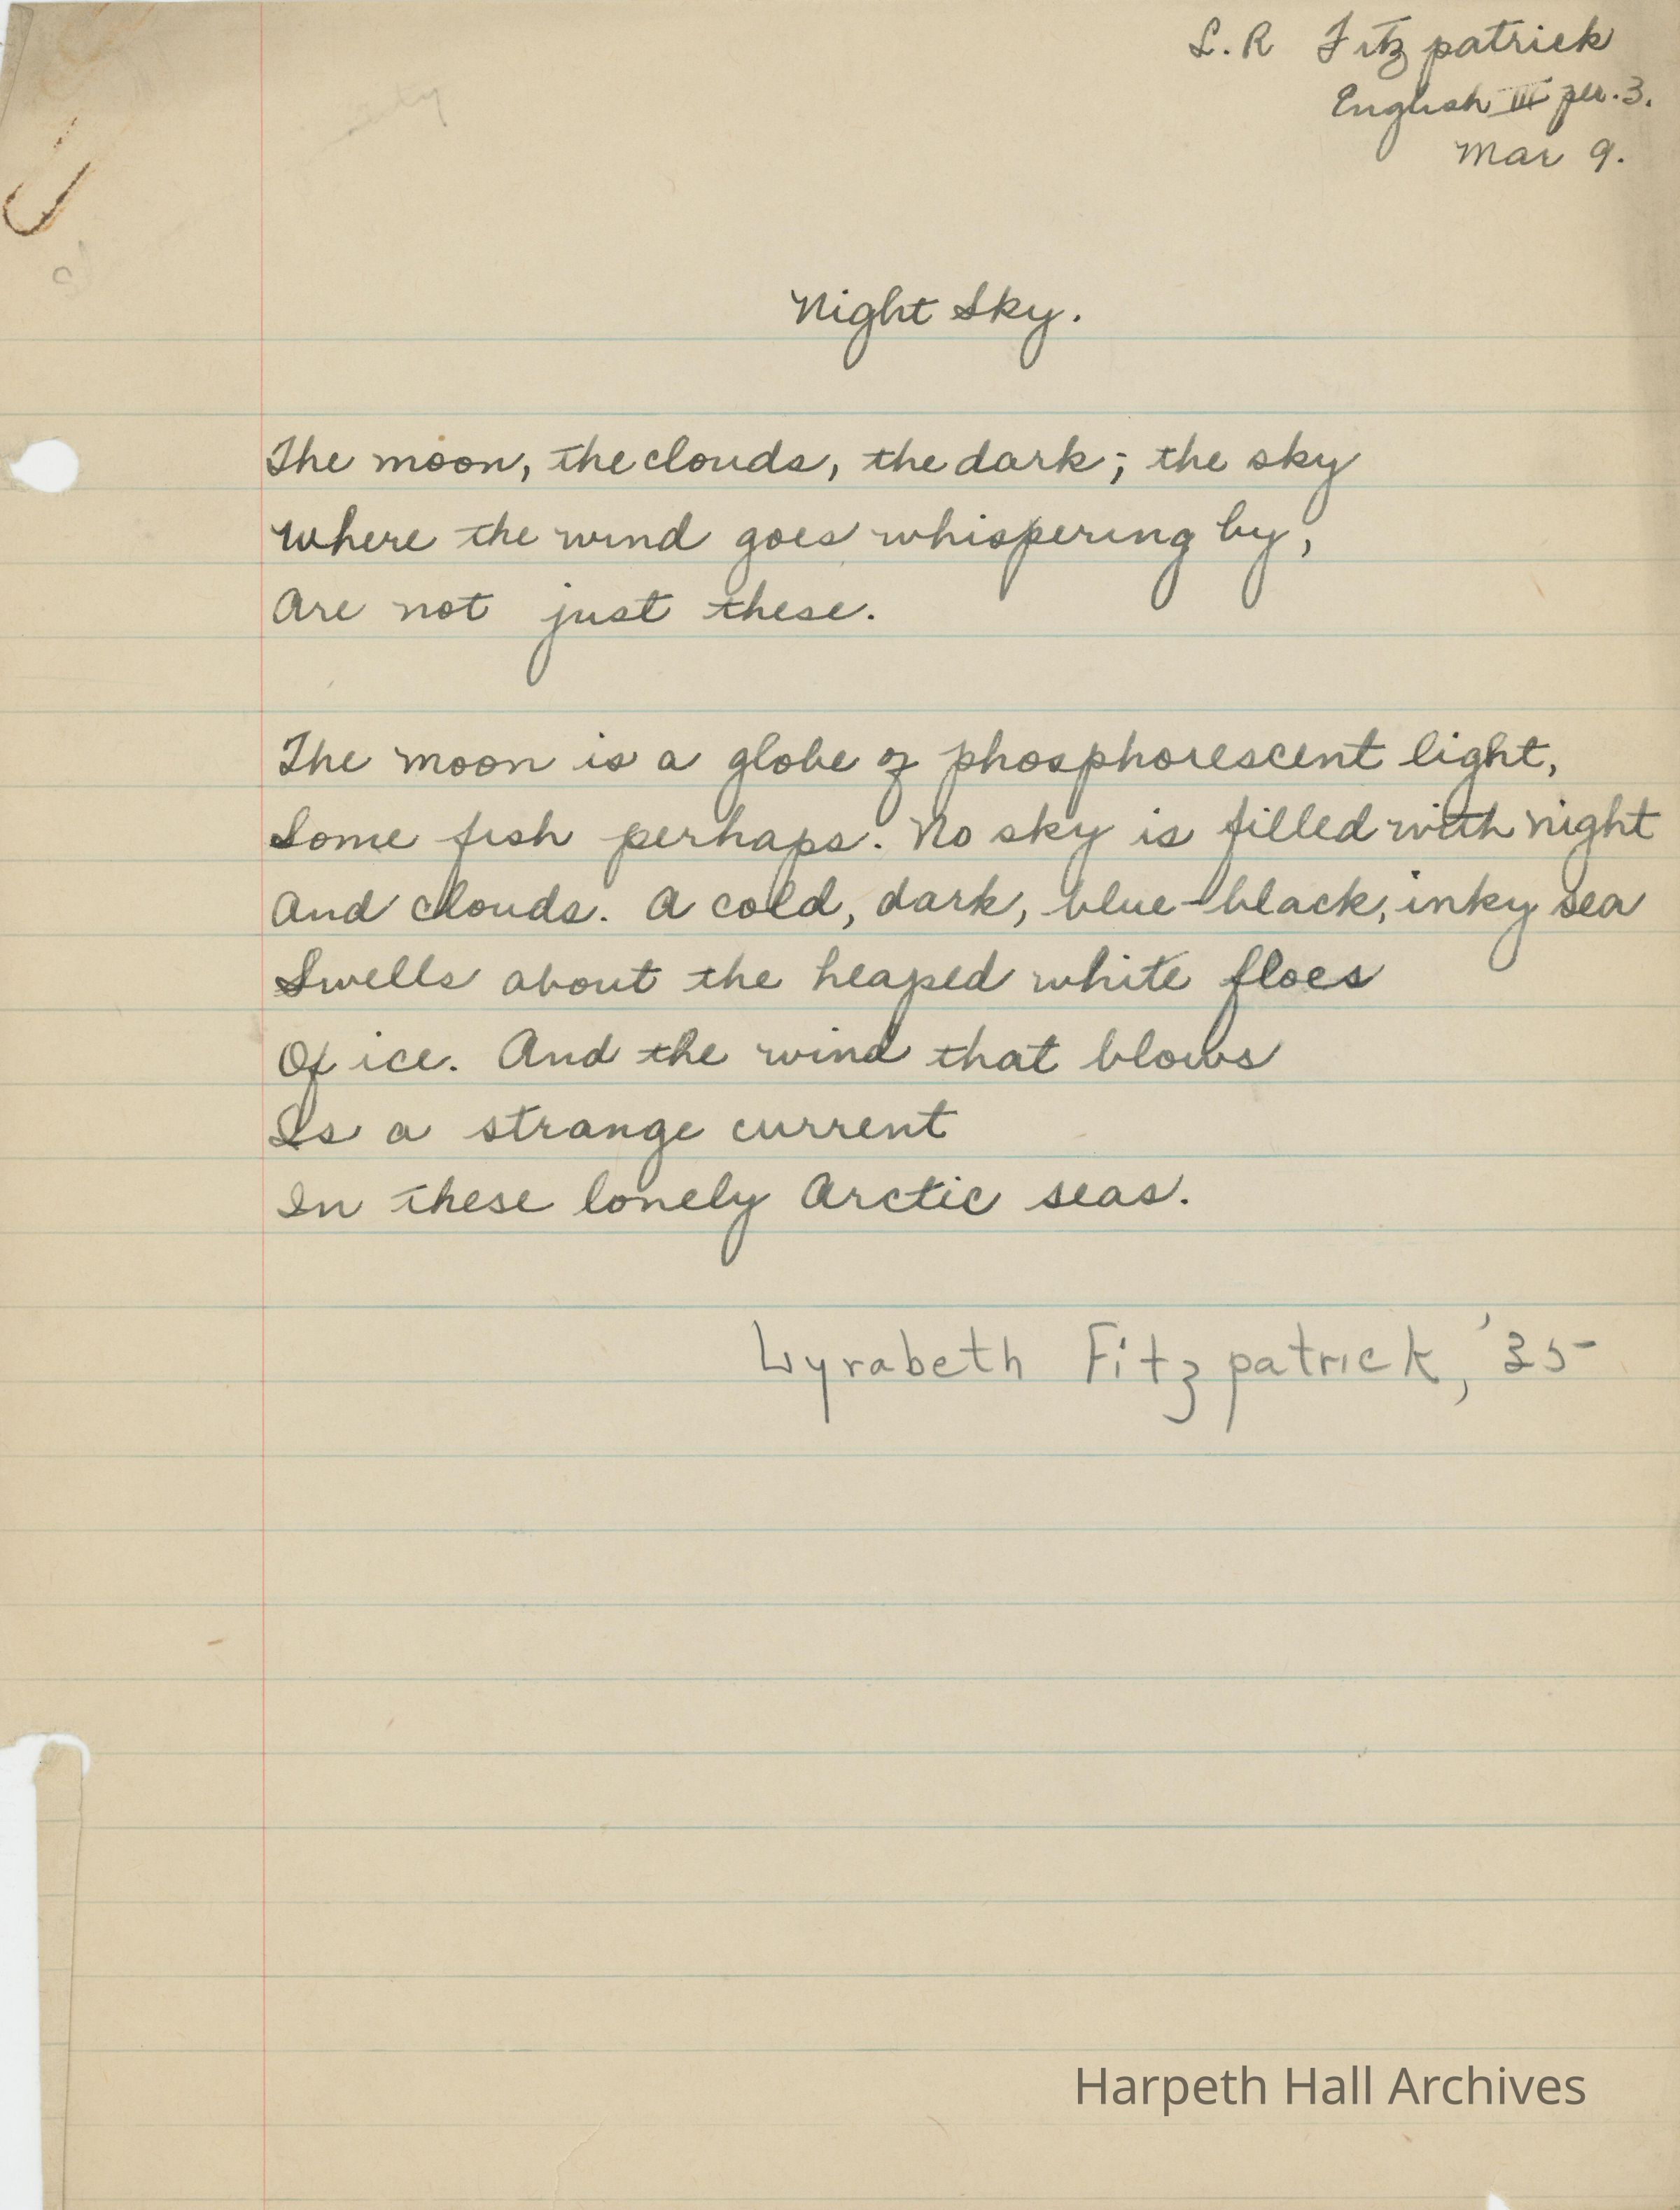 L. R Fitzpatrick
English III per. 3.
Mar 9.
Night Sky.
The moon, the clouds, the dark; the sky
Where the wind goes whispering by,
Are not just these.
The moon is a globe of phosphorescent light,
Some fish perhaps. No sky is filled with night
And clouds. A cold, dark, blue-black, inky sea
Swells about the heaped white floes
Of ice. And the wind that blows
Is a strange current
In these lonely Arctic seas.
Lyrabeth Fitzpatrick, '35
Harpeth Hall Archives